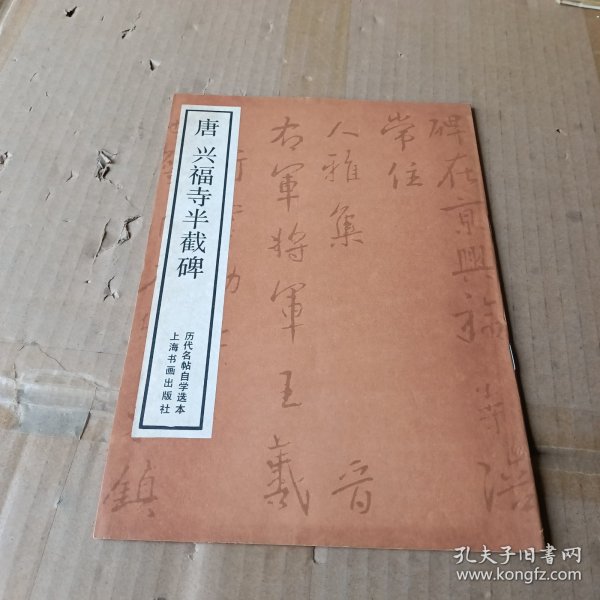 唐 兴福寺半截碑
历代名帖自学选本
上海书画出版社
碑在京興福寺浩
常住
人雅集 晋
右軍將軍王羲
鎮
孔夫子旧书网
www.kongfz.com